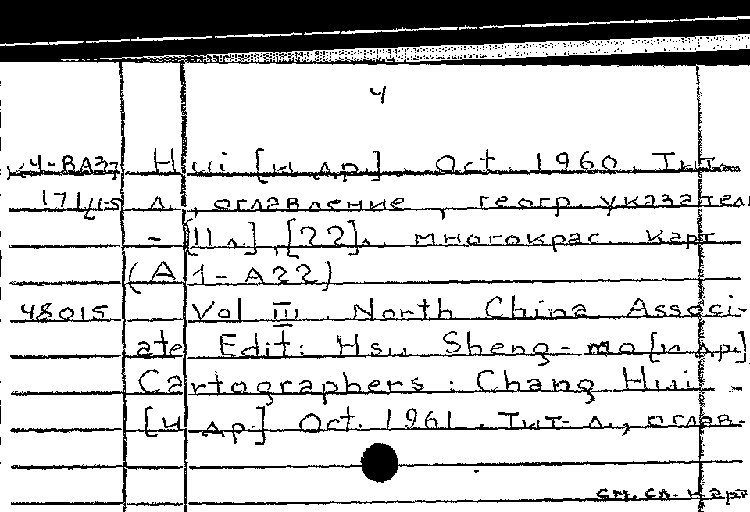 4
К4-ВА37 Hui [и др.]. Oct. 1960. Тит.
171/1-5 л., оглавление, геогр. указатель
- [11 л.], [22] л. многокрас. карт
(A 1 - A22)
48015 - Vol III. North China Associ-
ate Edit: Hsu Sheng-mo [и др.]
Cartographers: Chang Hui -
[и др.] Oct. 1961. Тит. л., оглав.
см. сл. карт